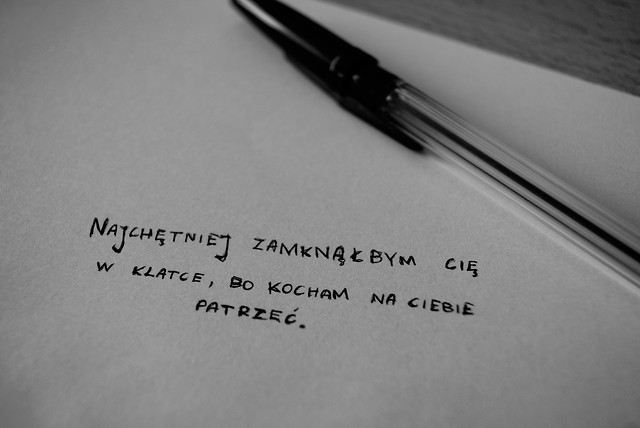 Najchętniej zamknąłbym cię
w klatce, bo kocham na ciebie
patrzeć.